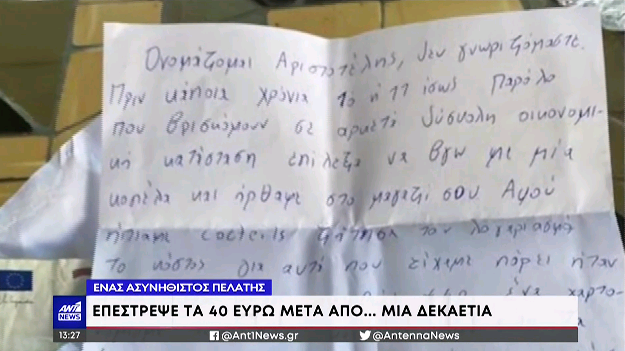 Ονομάζομαι Αριστοτέλης, δεν γνωριζόμαστε.
Πριν κάποια χρόνια 10 ή 11 ίσως Παρόλο
που βρισκόμουν σε αρκετά δύσκολη οικονομι-
κή κατάσταση επέλεξα να βγω με μία
κοπέλα και ήρθαμε στο μαγαζί σου Αφού
ήπιαμε coctails ζήτησα τον λογαριασμό
το κόστος για αυτά που είχαμε πάρει ήταν
ένα χαρτο-
ΕΝΑΣ ΑΣΥΝΗΘΙΣΤΟΣ ΠΕΛΑΤΗΣ
ΕΠΕΣΤΡΕΨΕ ΤΑ 40 ΕΥΡΩ ΜΕΤΑ ΑΠΟ... ΜΙΑ ΔΕΚΑΕΤΙΑ
ANT1 NEWS
13:27
@Ant1News.gr
@AntennaNews